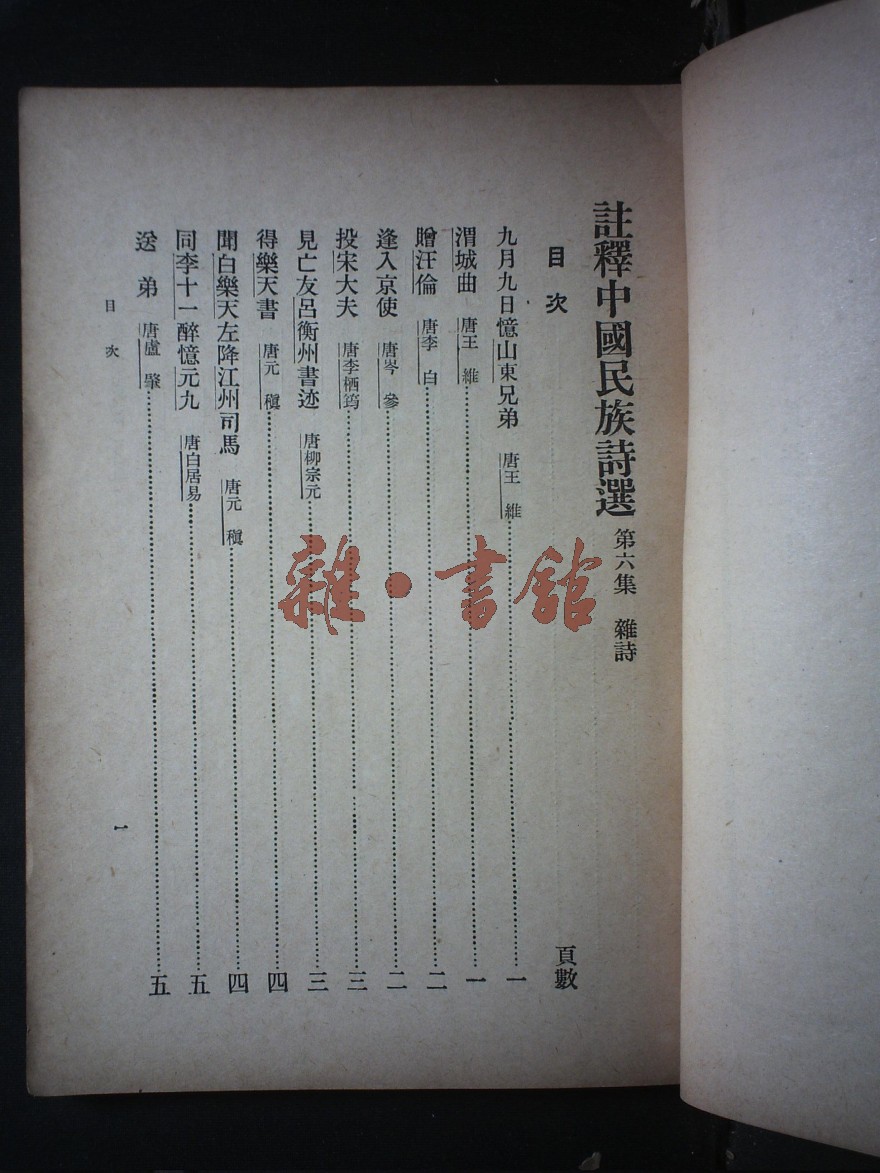 註釋中國民族詩選 第六集 雜詩
目次 頁數
九月九日憶山東兄弟 唐王維……一
渭城曲 唐王維……一
贈汪倫 唐李白……二
逢入京使 唐岑參……二
投宋大夫 唐李栖筠……三
見亡友呂衡州書迹 唐柳宗元……三
得樂天書 唐元稹……四
聞白樂天左降江州司馬 唐元稹……四
同李十一醉憶元九 唐白居易……五
送弟 唐盧肇……五
目次 一
雜·書館